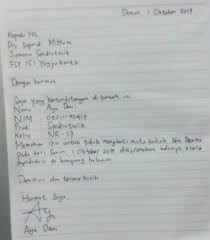 Senin, 1 Oktober 2019
Kepada Yth.
Drs. Supardi M.Hum
Jurusan Sendratasik
FSP ISI Yogyakarta
Dengan hormat
Saya yang bertandatangan di bawah ini
Nama : Ayu Dewi
NIM :
Prodi : Sendratasik
Kelas : NR-17
Memohon izin untuk tidak mengikuti mata kuliah Seni Drama
pada hari Senin, 1 Oktober 2019 dikarenakan adanya acara
di kampung halaman
Demikian dan terima kasih
Hormat Saya,
Ayu Dewi